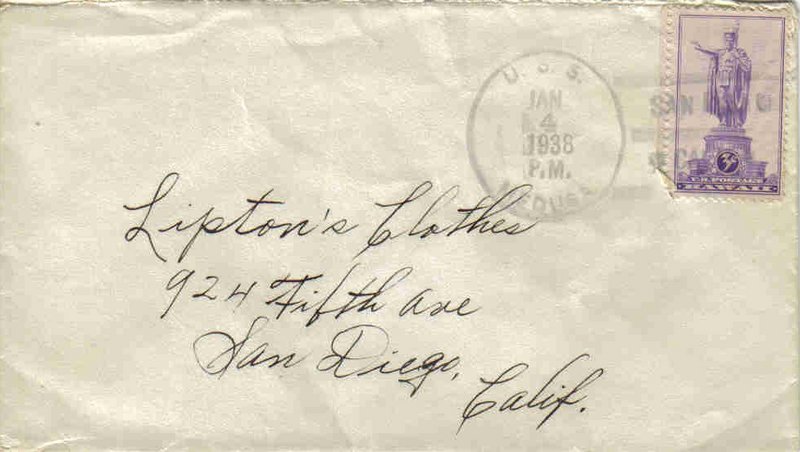 U.S.S.
JAN
4
1938
P.M.
MEDUSA
SAN
CAL
3¢
U.S. POSTAGE
HAWAII
Lipton's Clothes
924 Fifth Ave
San Diego,
Calif.